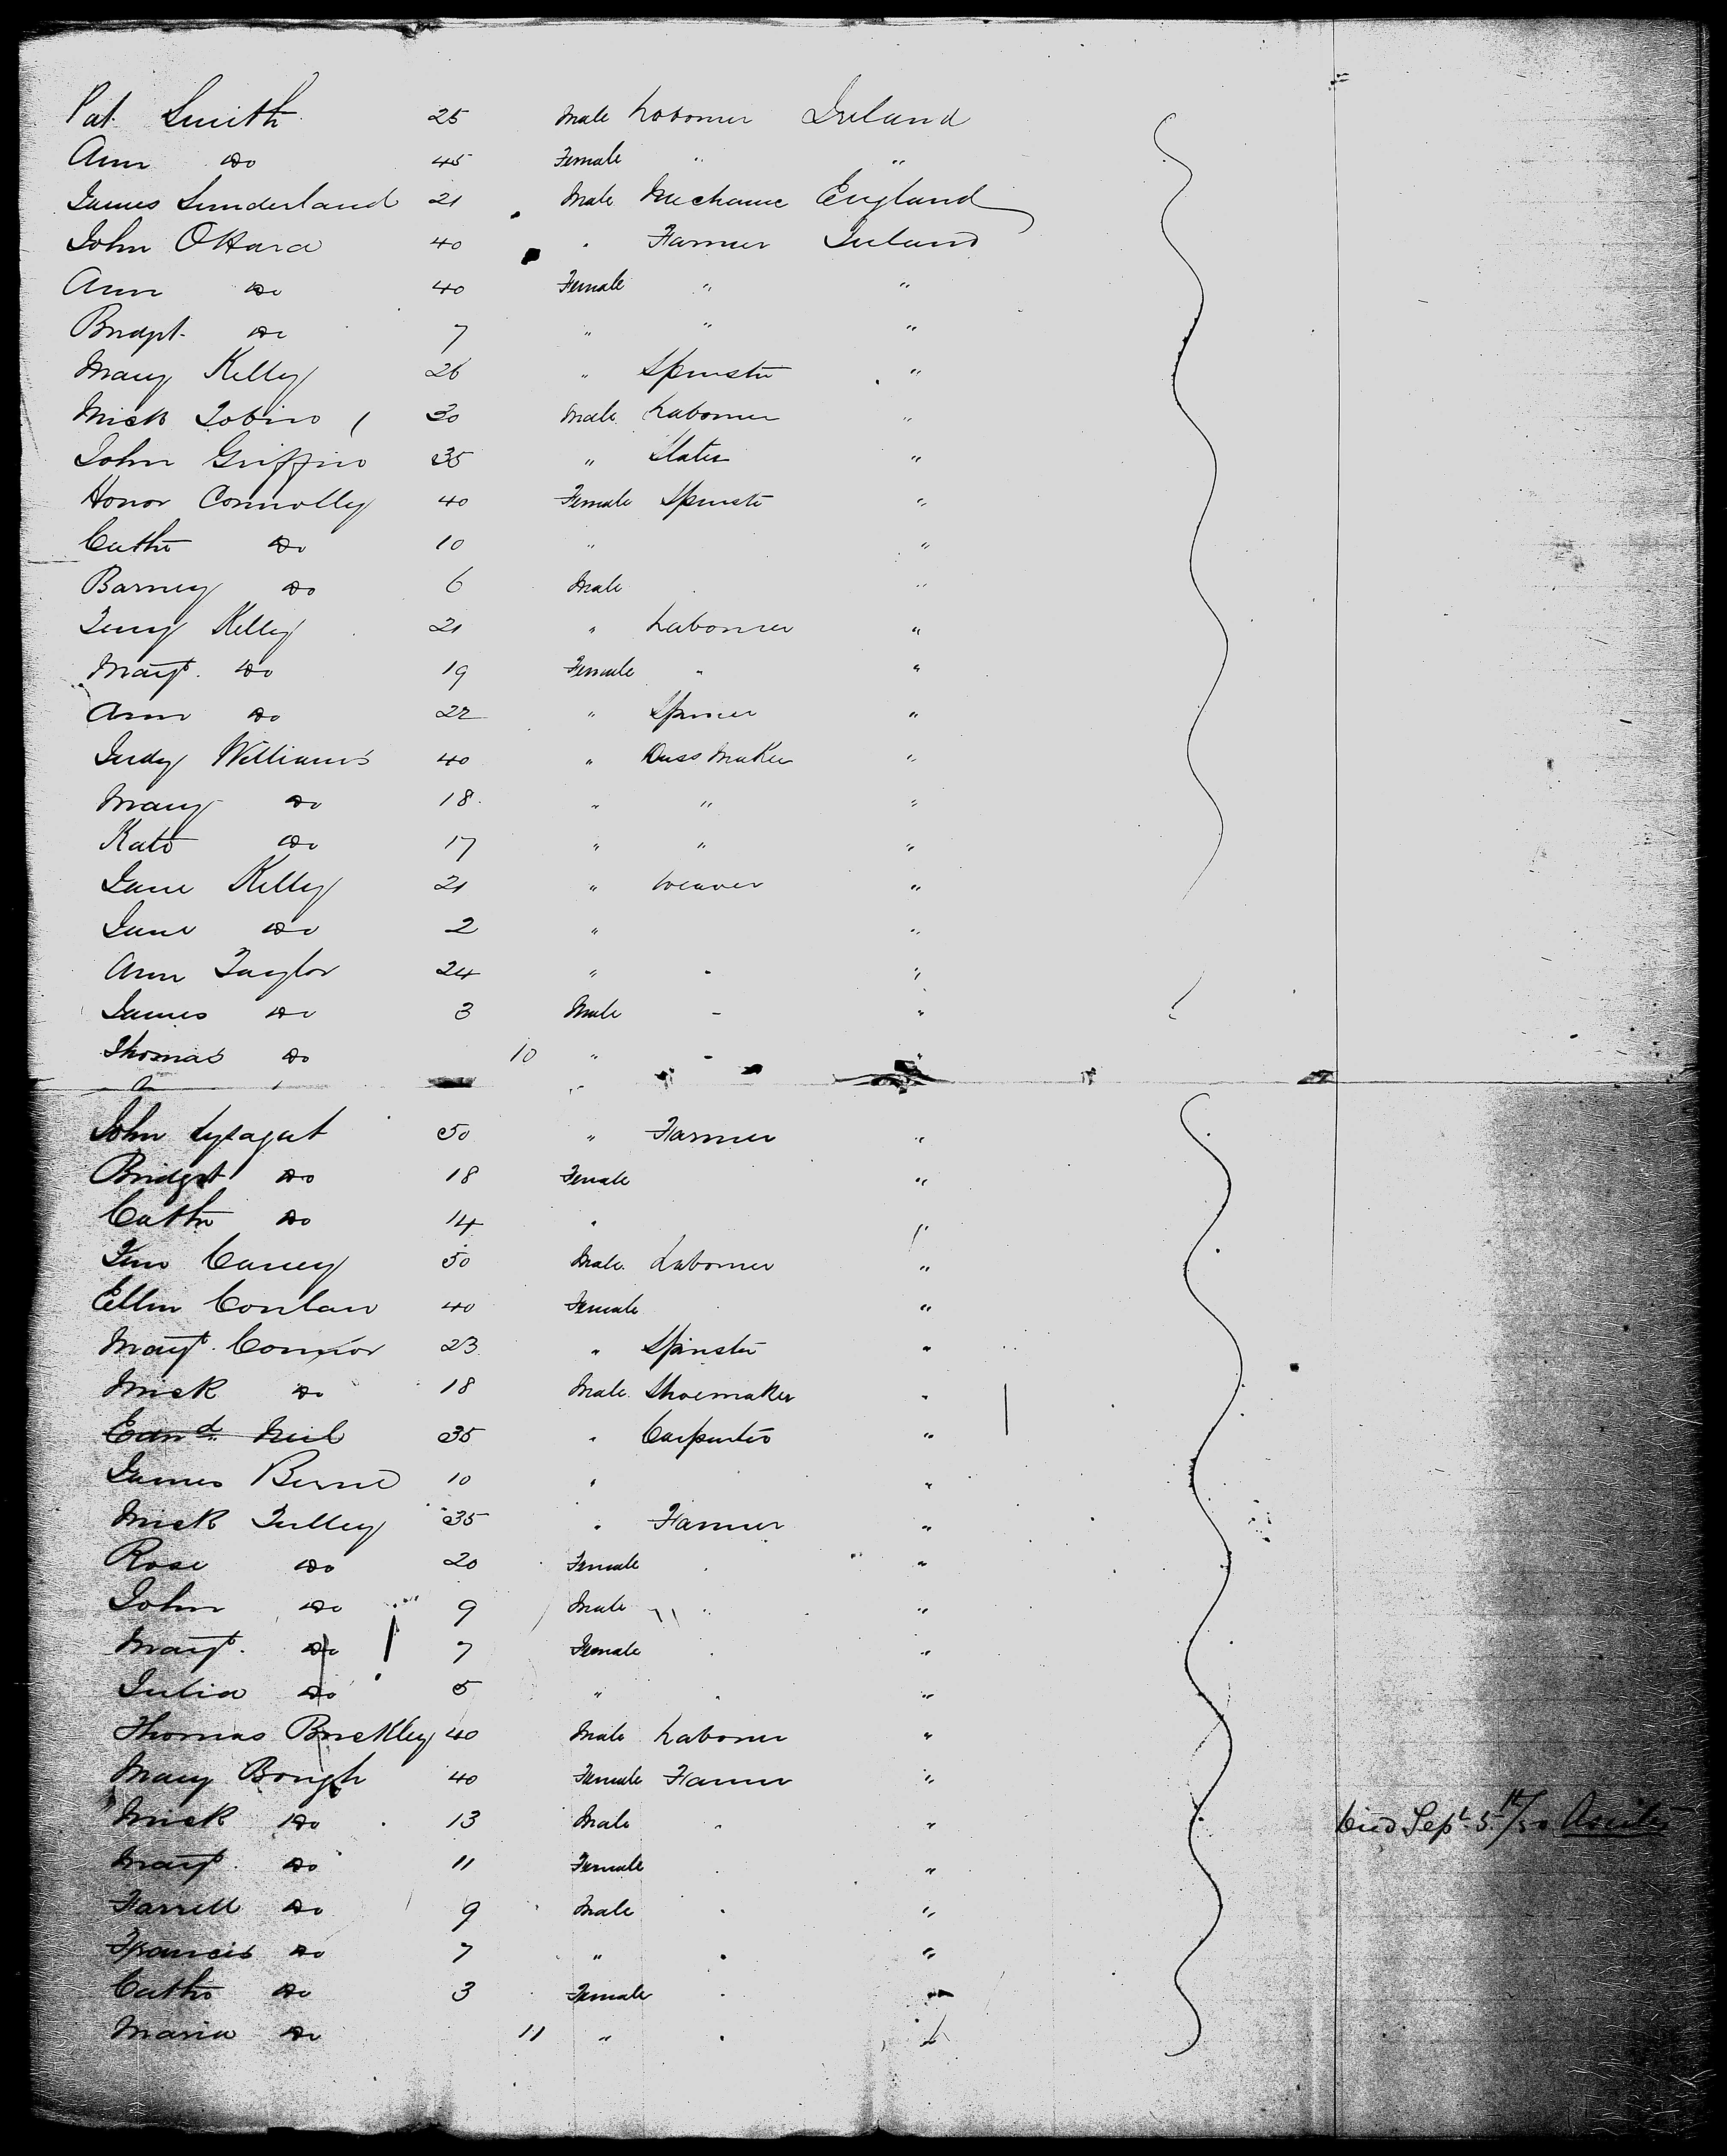 Pat Smith 25 Male Labourer Ireland
Ann Do 45 Female " "
James Sunderland 21 Male Mechanic England
John OHara 40 " Farmer Ireland
Ann Do 40 Female " "
Bridgt Do 7 " " "
Mary Kelly 26 " Spinster "
Mick Tobin 30 Male Labourer "
John Griffin 35 " Slater "
Honor Connolly 40 Female Spinster "
Cathe Do 10 " "
Barney Do 6 Male "
Kelly 21 " Labourer "
Margt. Do 19 Female " "
Ann Do 22 " "
Judy Williams 40 " Dress Maker "
Mary Do 18 " " "
Kate Do 17 " " "
Jane Kelly 21 " Weaver "
Jane Do 2 " "
Ann Taylor 24 " - "
James Do 3 Male - "
Thomas Do 10 " - "
John Lysagat 50 " Farmer "
Bridget Do 18 Female "
Cathe Do 14 " "
Tim 50 Male Labourer "
Ellen Conlan 40 Female "
Margt. Connor 23 " Spinster "
Mick Do 18 Male Shoemaker "
Edmd. Neil 35 " Carpenter "
James Birne 10 " "
Mick Tulley 35 " Farmer "
Rose Do 20 Female "
John Do 9 Male " "
Margt. Do 7 Female "
Julia Do 5 " "
Thomas Buckley 40 Male Labourer "
Mary Bough 40 Female Farmer "
Mick Do 13 Male " Died Sept. 5th/50
Margt. Do 11 Female "
Farrell Do 9 Male "
Francis Do 7 " "
Cathe Do 3 Female "
Maria Do 11 " "